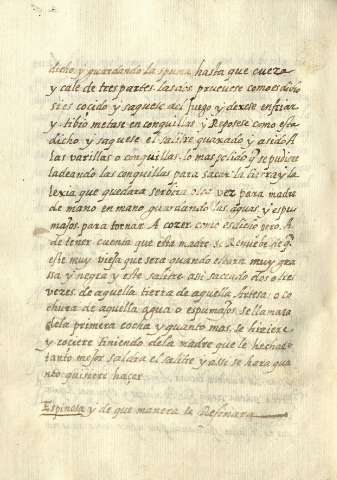 dicho y guardando la spuma, hasta que cueza
y cale de tres partes las dos pruevese como es dicho
si es cocido y saquese del fuego y dexese enfriar
y tibio metase en conquillas y Reposese como esta
dicho y saquese el salitre quaxado y asido A
las varillas o conquillas lo mas polido q se pudiere
ladeando las conquillas para sacar la tierra y la
lexia que quedara servira otra vez para madre
de mano en mano guardando las aguas y espu
majos para tornar A cozer como es dicho pero A
de tener cuenta que esta madre se Renueve de q
este muy vieja que sera quando estara muy gra
ssa y negra y este salitre asi sacado dos o tres
vezes de aquella tierra de aquella Artesa o co
chura de aquella agua o espumajos se llamara
de la primera cocha y quanto mas se hiziere
y cociere tiniendo de la madre que le hechar
tanto mejor saldra el salitre y assi se hara qua
nto quisiere hacer
Espinosa y de que manera se Refinara